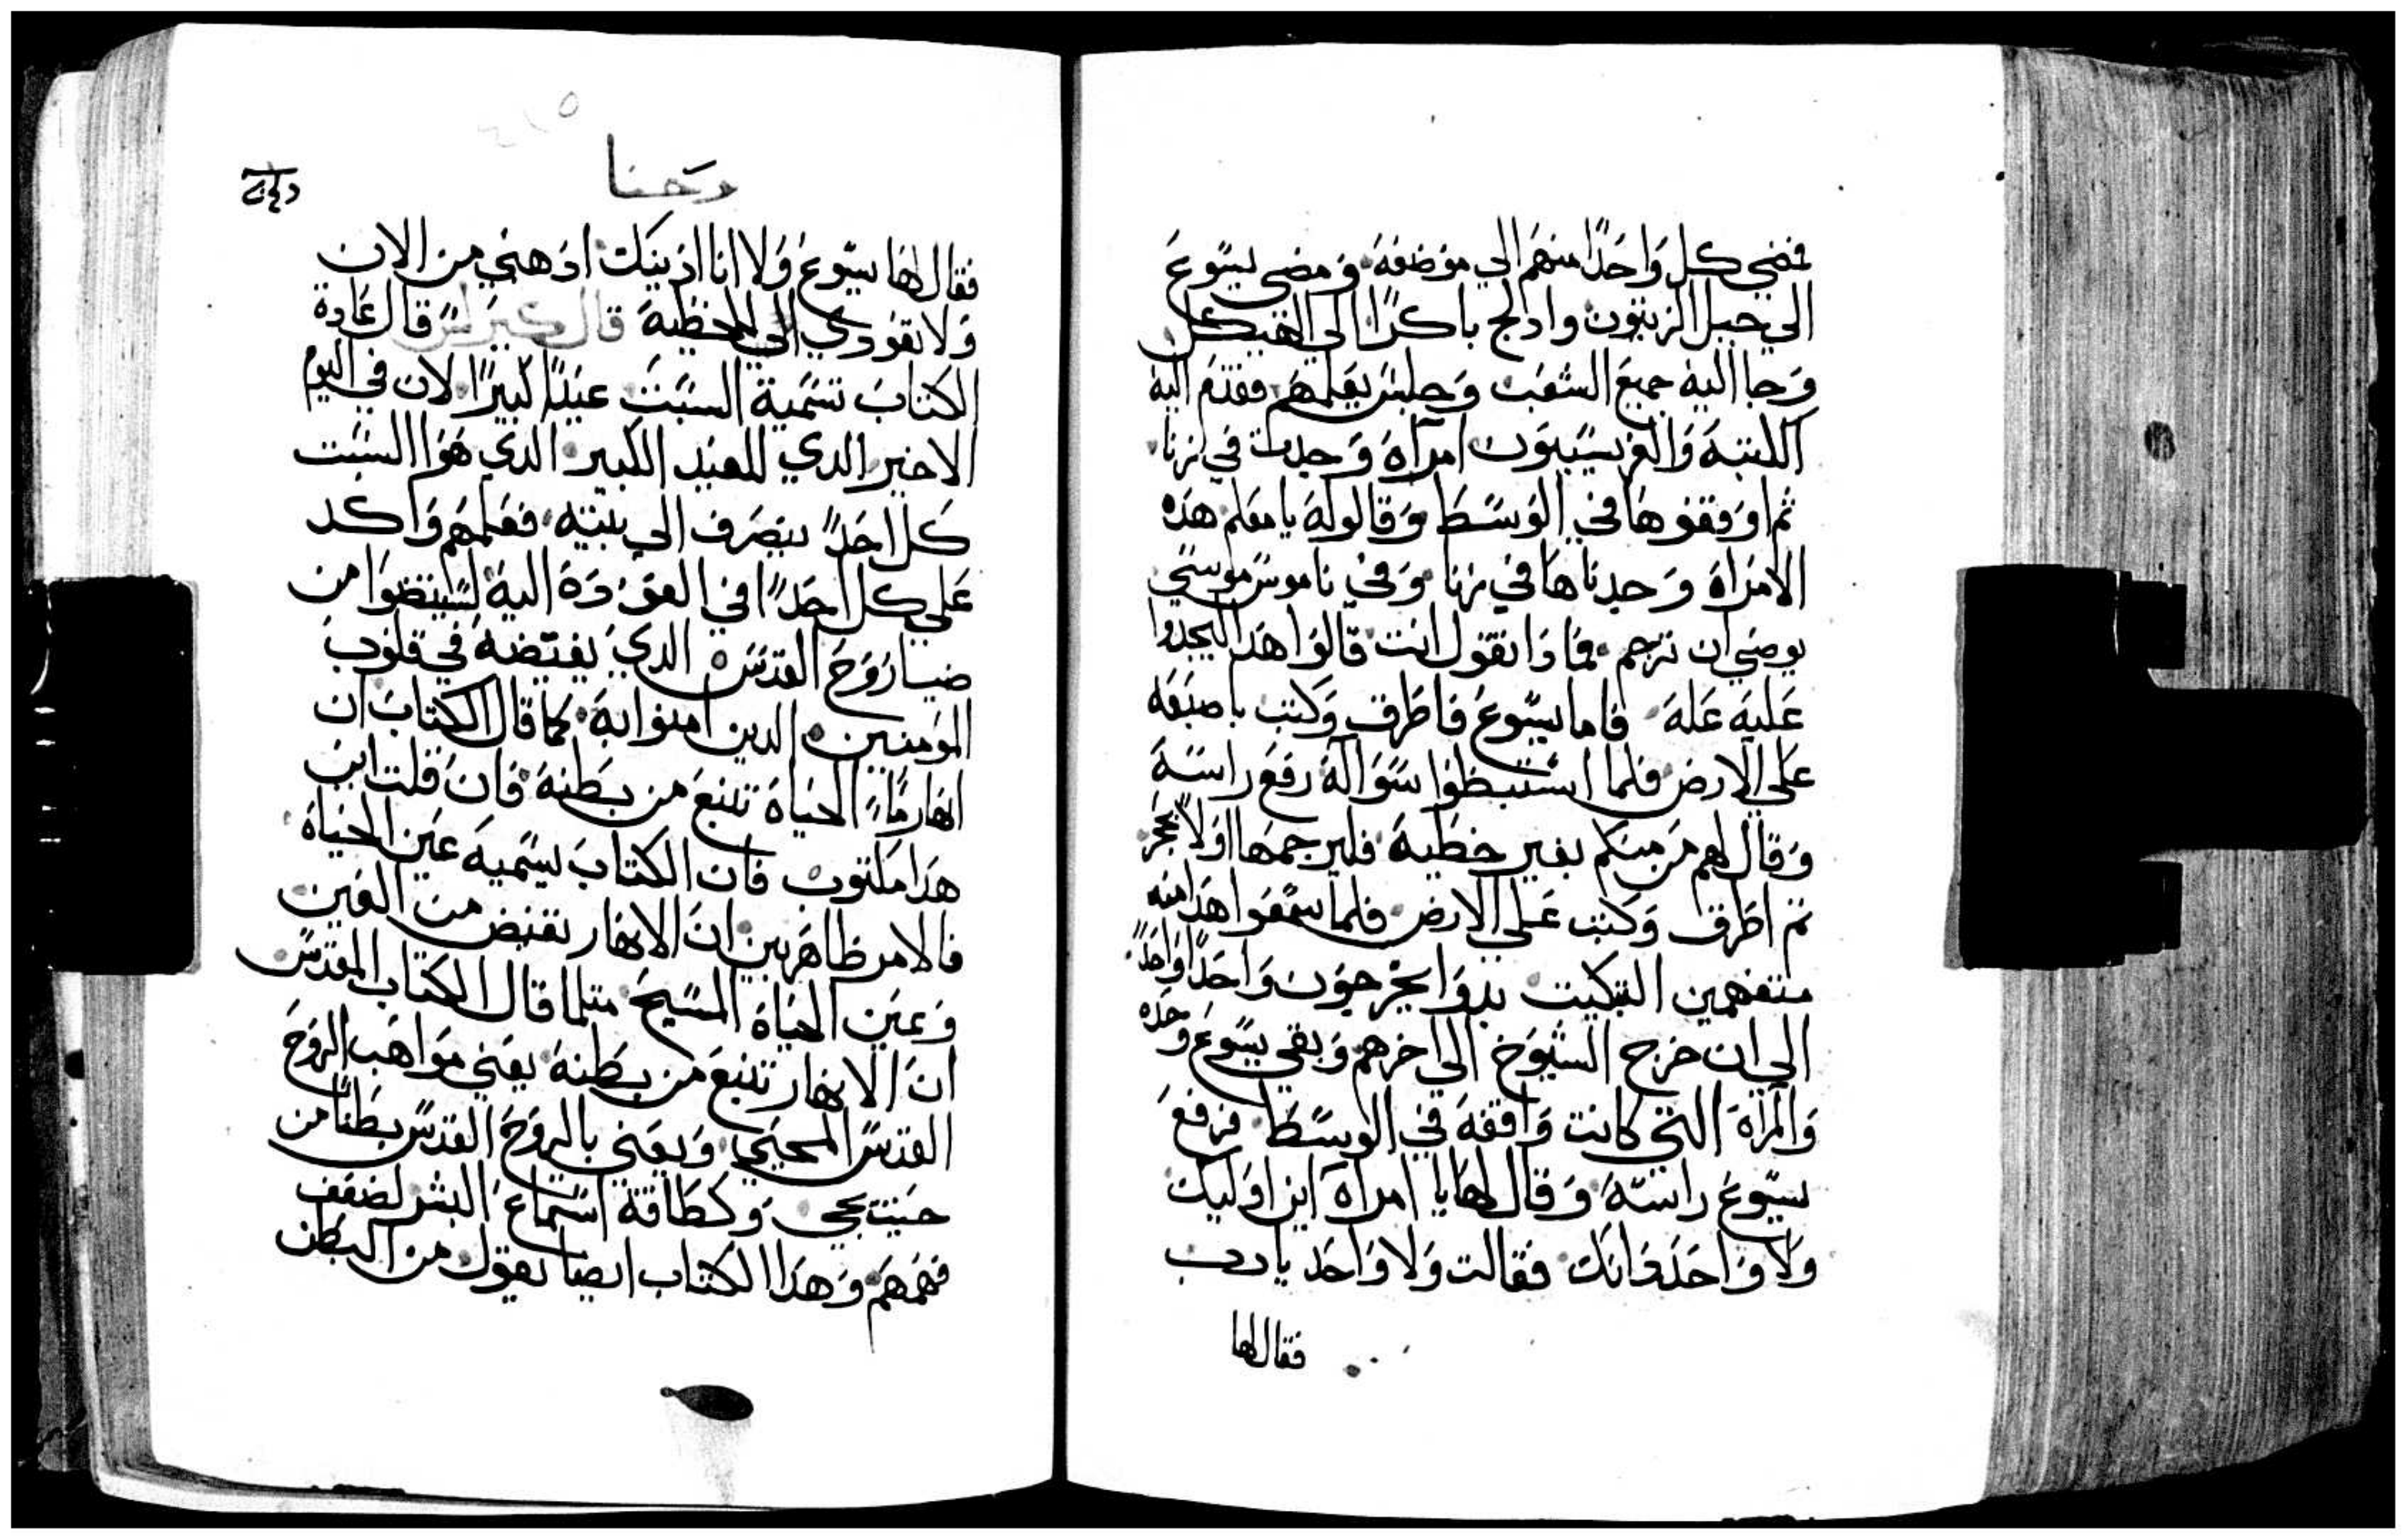 فمضي كل واحدًا منهم الي موضعه ومضي يسوع
الي جبل الزيتون وادلج باكرًا الي الهيكل
وجا اليه جميع الشعب وجلس يعلمهم فقدم اليه
الكتبه والفريسيون امرآه وجدت في زنا
ثم اوقفوها في الوسط وقالوله يا معلم هذه
الامراه وجدناها في زنا وفي ناموس موسي
يوصي ان ترجم فماذا تقول انت قالوا هذا ليجدوا
عليه عله فاما يسوع فاطرق وكتب باصبعه
علي الارض فلما استبطوا سواله رفع راسه
وقال لهم من منكم بغير خطيه فليرجمها اولاً بحجر
ثم اطرق وكتب علي الارض فلما سمعوا هذا منه
متفهمين التبكيت بدوا يخرجون واحدًا واحدًا
الي ان خرج الشيوخ الي اخرهم وبقي يسوع وحده
والمرآه التي كانت واقفه في الوسط فرفع
يسوع راسه وقال لها يا امراه اين اوليك
ولا واحد دانك فقالت ولا واحد يا رب
فقال لها
وحنا
فقال لها يسوع ولا انا ادينك اذهبي من الان
ولا تعودي الي الخطيه قال كيرلس قال عادة
الكتاب تسمية السبت عيدًا كبيرًا لان في اليوم
الاخير الدي للعيد الكبير الدي هوا السبت
كل احدً ينصرف الي بيته فعلمهم واكد
علي كل احدًا في العودة اليه ليستضوا من
ضيا روح القدس الدي يفيضه في قلوب
المومنين الدين امنوا به كما قال الكتاب ان
انهار ماء الحياة تنبع من بطنه فان قلت اين
هدا مكتوب فان الكتاب يسميه عين الحياة
فالامر ظاهر بين ان الانهار تفيض من العين
وعين الحياة المسيح متلما قال الكتاب المقدس
ان الانهار تنبع من بطنه يعني مواهب الروح
القدس المحيي ويعني بالروح القدس بطنًا من
حيت يحي وكطاقة استماع البشر لضعف
فهمهم وهدا الكتاب ايضا يقول من البطن